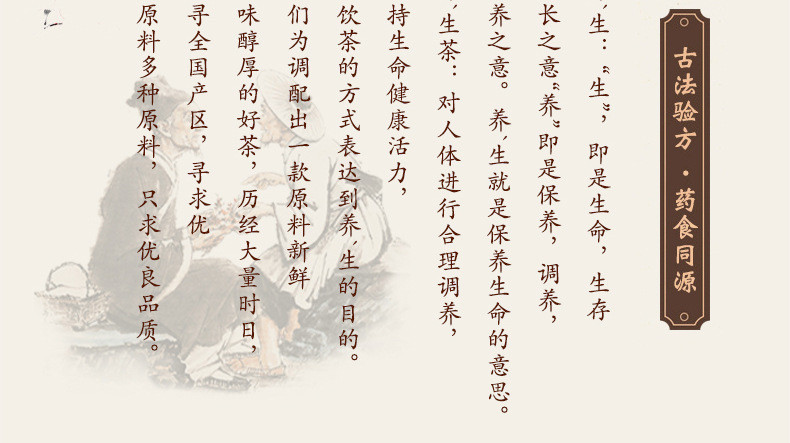 古法验方·药食同源
´生：“生”，即是生命，生存
长之意“养”即是保养，调养，
养之意。养´生就是保养生命的意思。
´生茶：对人体进行合理调养，
持生命健康活力，
饮茶的方式表达到养´生的目的。
们为调配出一款原料新鲜
味醇厚的好茶，历经大量时日，
寻全国产区，寻求优
原料多种原料，只求优良品质。